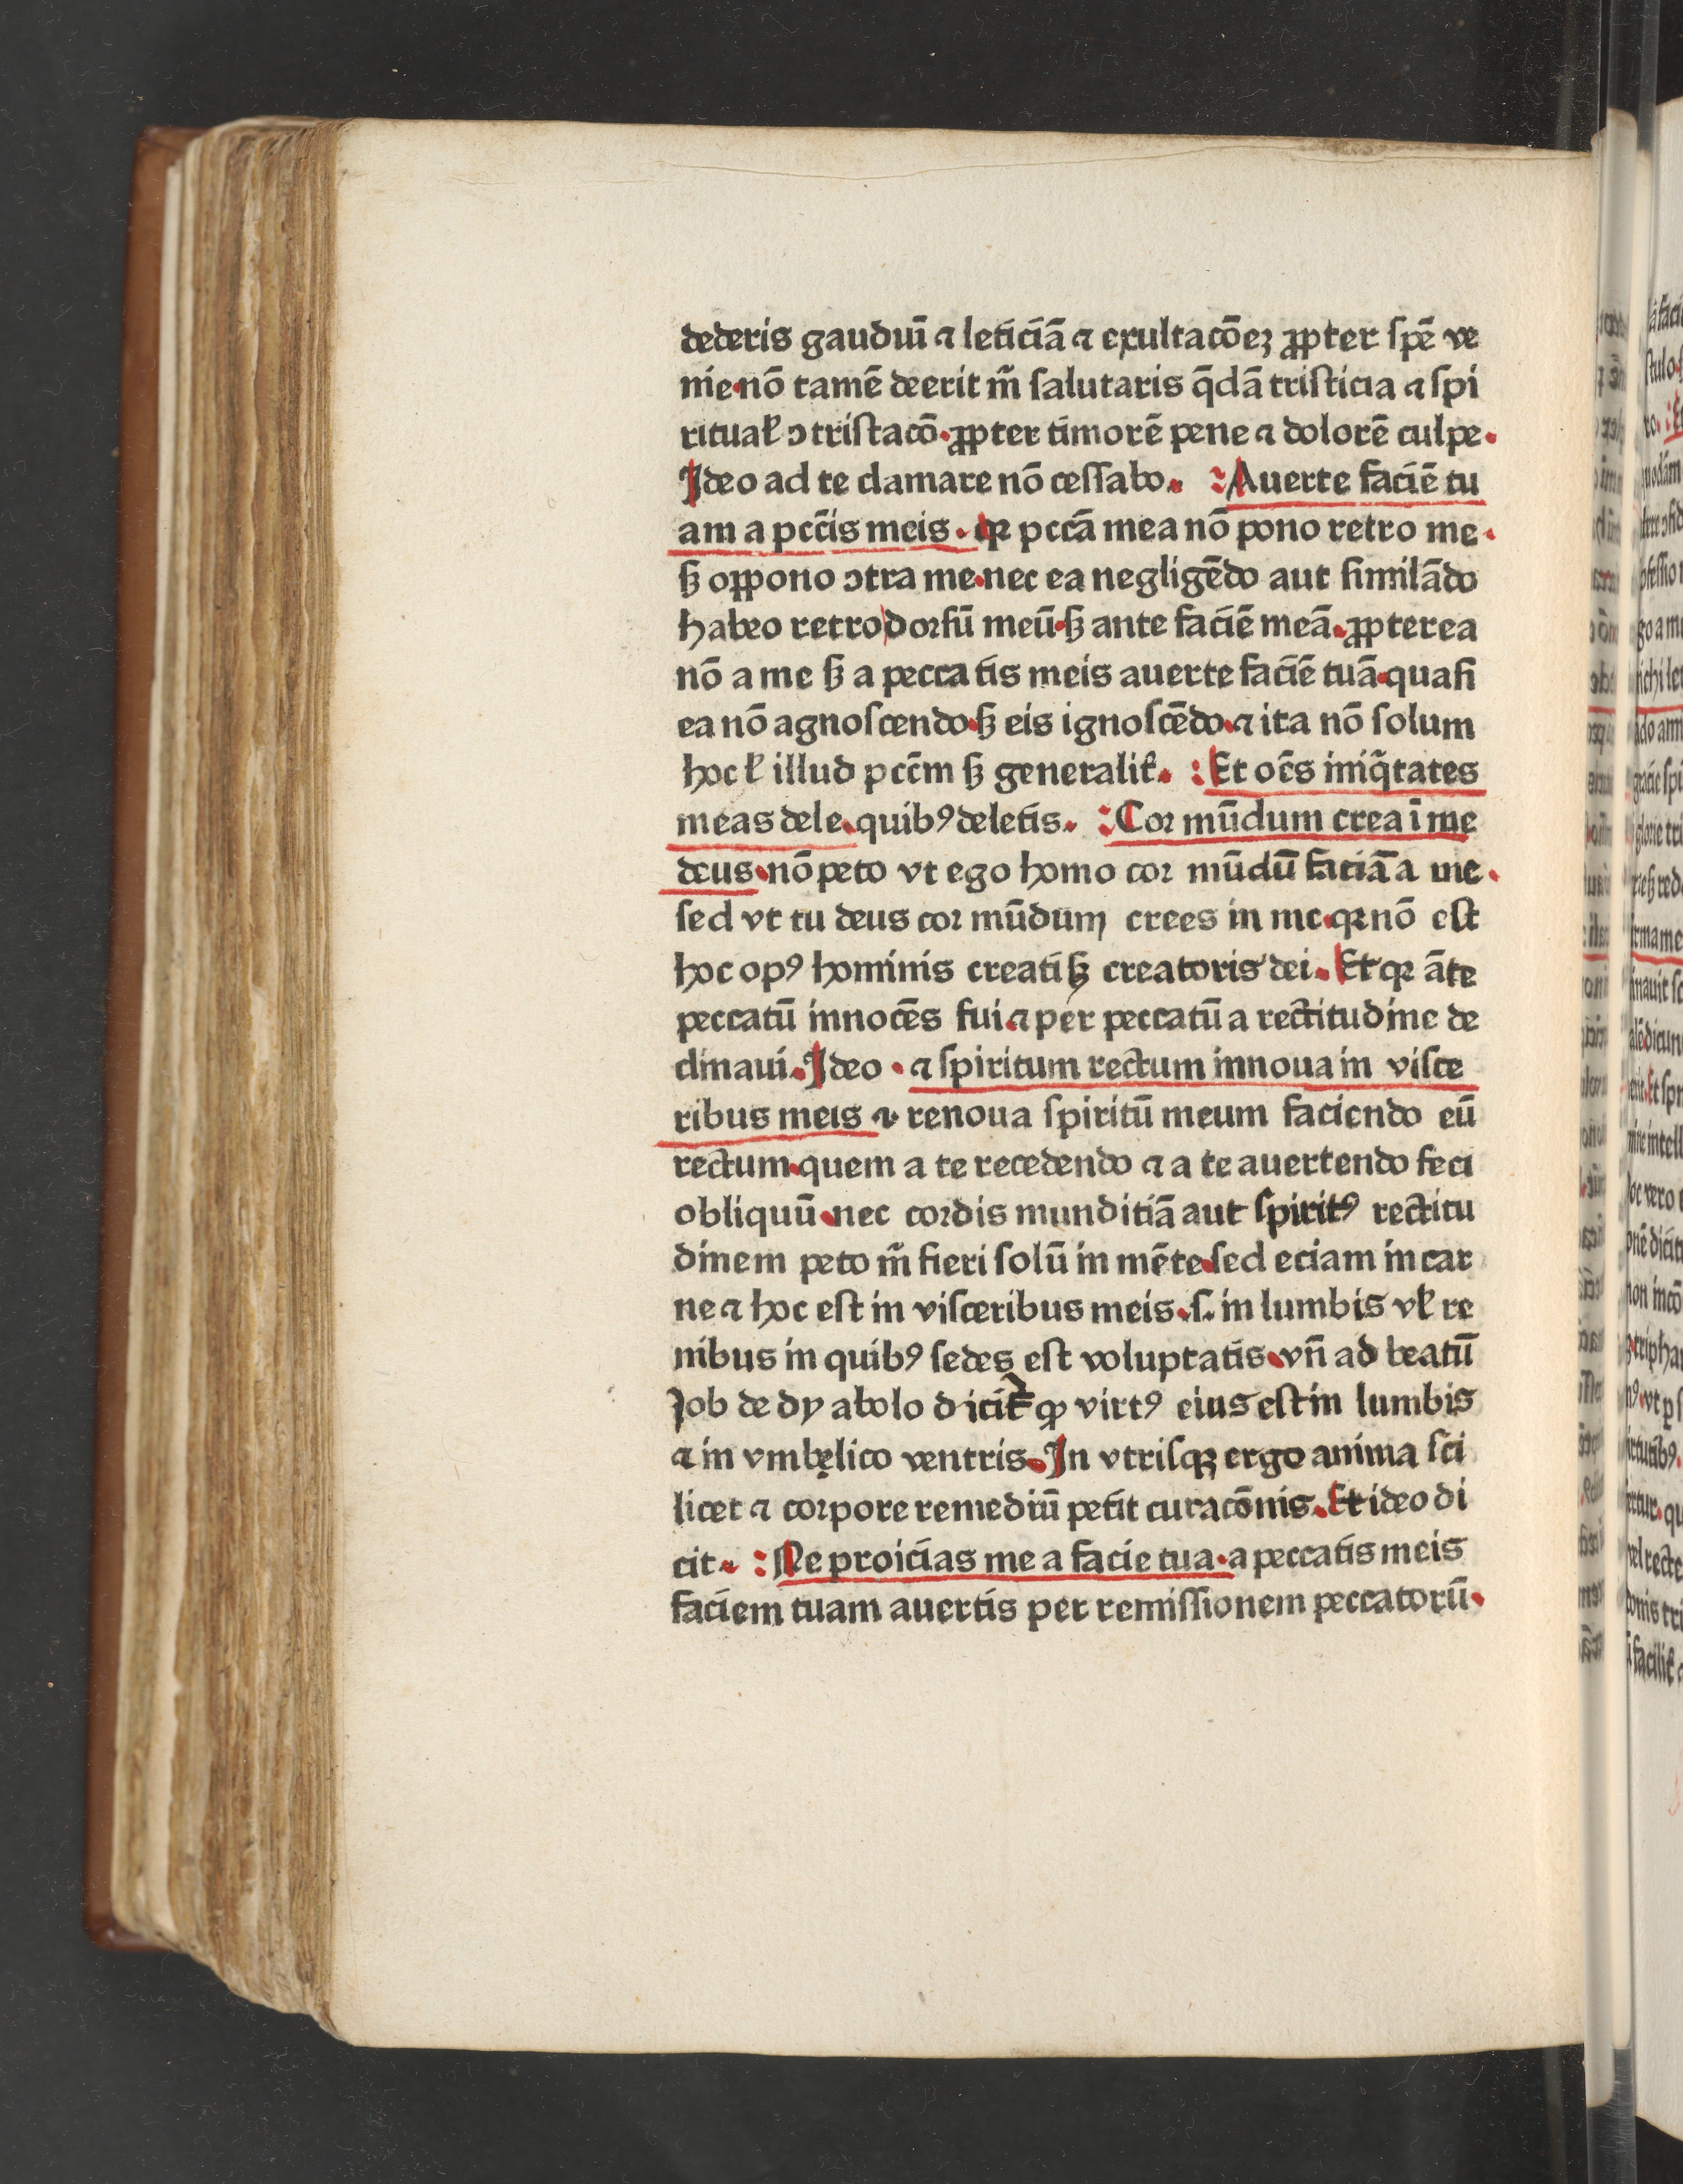 dederis gaudiū ⁊ leticiā ⁊ exultacōeꝫ ꝓpter ſpē ve
nie·nō tamē deerit m̄ ſalutaris q̄dā triſticia ⁊ ſpi
ritual̛ ↄtriſtacō·ꝓpter timorē pene ⁊ dolorē culpe·
Ideo ad te clamare nō ceſſabo· Auerte faciē tu
am a pccīs meis· qꝛ pccā mea nō pono retro me·
ſꝫ oppono ↄtra me·nec ea negligēdo aut ſimilādo
habeo retro dorſū meū·ſꝫ ante faciē meā·ꝓpterea
nō a me ſꝫ a peccatis meis auerte faciē tuā·quaſi
ea nō agnoſcendo·ſꝫ eis ignoſcēdo·⁊ ita nō ſolum
hoc l̛ illud pccm̄ ſꝫ generalit̛· Et oēs iniq̄tates
meas dele·quibꝰ deletis· Cor mūdum crea ī me
deus·nō peto vt ego homo cor mūdū faciā a me·
ſed vt tu deus cor mūdum crees in me·qꝛ nō eſt
hoc opꝰ hominis creati ſꝫ creatoris dei· Et qꝛ āte
peccatū innocēs fui·⁊ per peccatū a rectitudine de
clinaui·Ideo · ⁊ ſpiritum rectum innoua in viſce
ribus meis ⁊ renoua ſpiritū meum faciendo eū
rectum·quem a te recedendo ⁊ a te auertendo feci
obliquū·nec cordis munditiā aut ſpiritꝰ rectitu
dinem peto m̄ fieri ſolū in mēte·ſed eciam in car
ne ⁊ hoc eſt in viſceribus meis·ſ. in lumbis vl̛ re
nibus in quibꝰ ſedes eſt voluptatis·vn̄ ad beatū
Job de dyabolo dicit̛ ꝙ virtꝰ eius eſt in lumbis
⁊ in vmbelico ventris·In vtriſqꝫ ergo anima ſci
licet ⁊ corpore remediū petit curacōnis·Et ideo di
cit· Ne proicias me a facie tua·a peccatis meis
faciem tuam auertis per remiſſionem peccatorū·